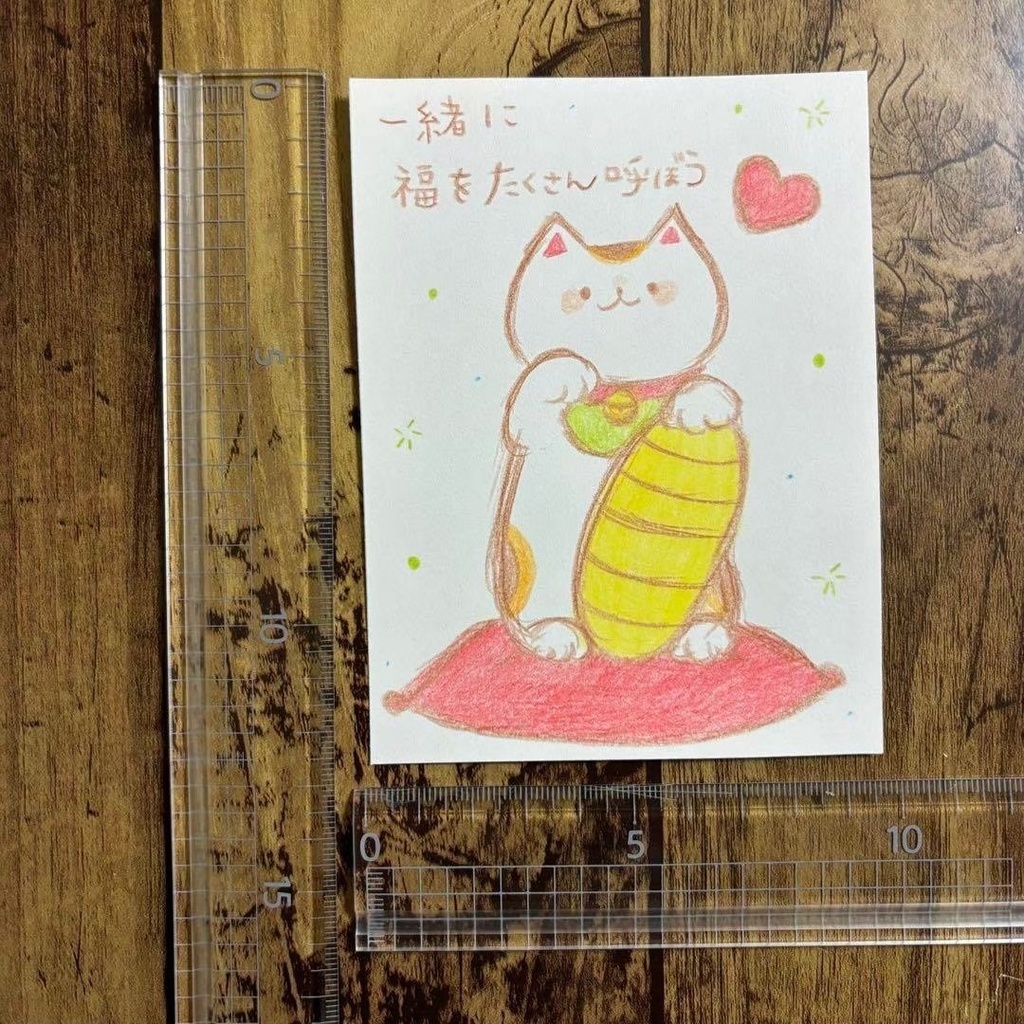 一緒に
福をたくさん呼ぼう
0
5
10
15
0
5
10